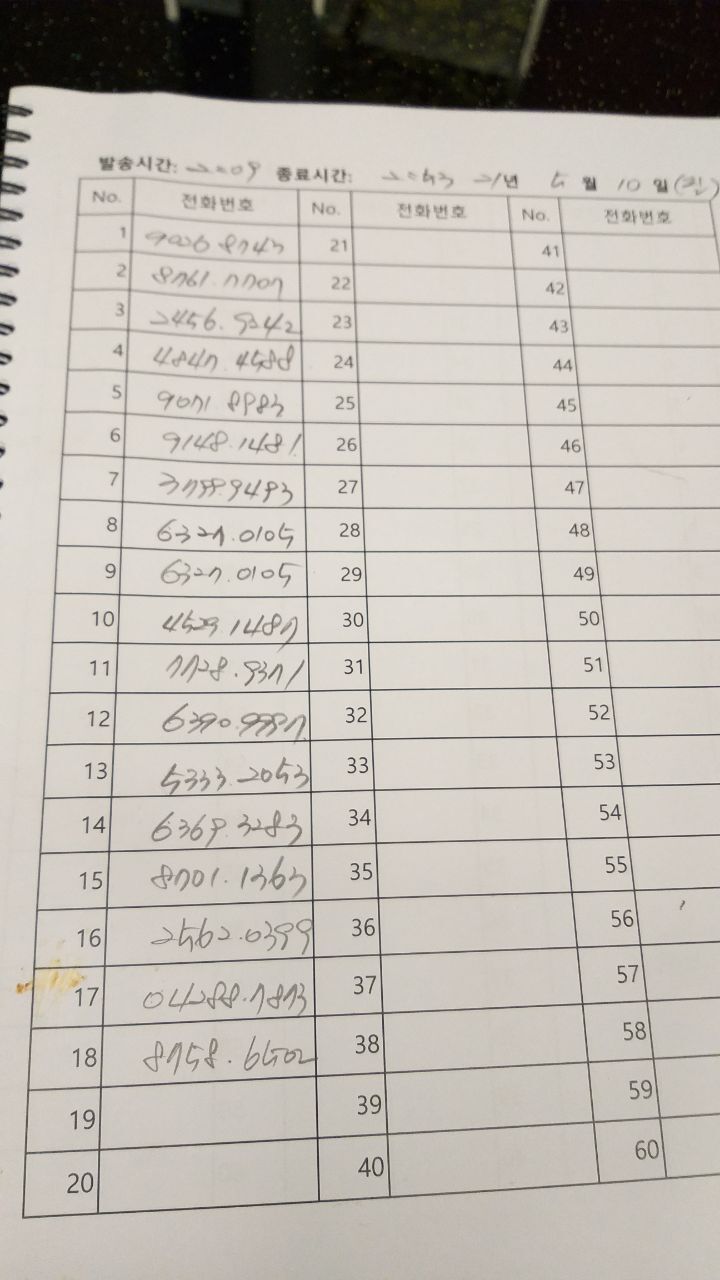 발송시간: 2:09 종료시간: 2:53 21년 5월 10일(킨)
No. 전화번호 No. 전화번호 No. 전화번호
1 21 41
2 8761.7707 22 42
3 2456.9242 23 43
4 4847.4588 24 44
5 9071.8983 25 45
6 9148.1481 26 46
7 3799.9493 27 47
8 6327.0105 28 48
9 6327.0105 29 49
10 4529.1487 30 50
11 7728.9371 31 51
12 6390.9997 32 52
13 5333.2053 33 53
14 6369.3283 34 54
15 8701.1363 35 55
16 2562.0399 36 56
17 04288.7873 37 57
18 8758.6502 38 58
19 39 59
20 40 60